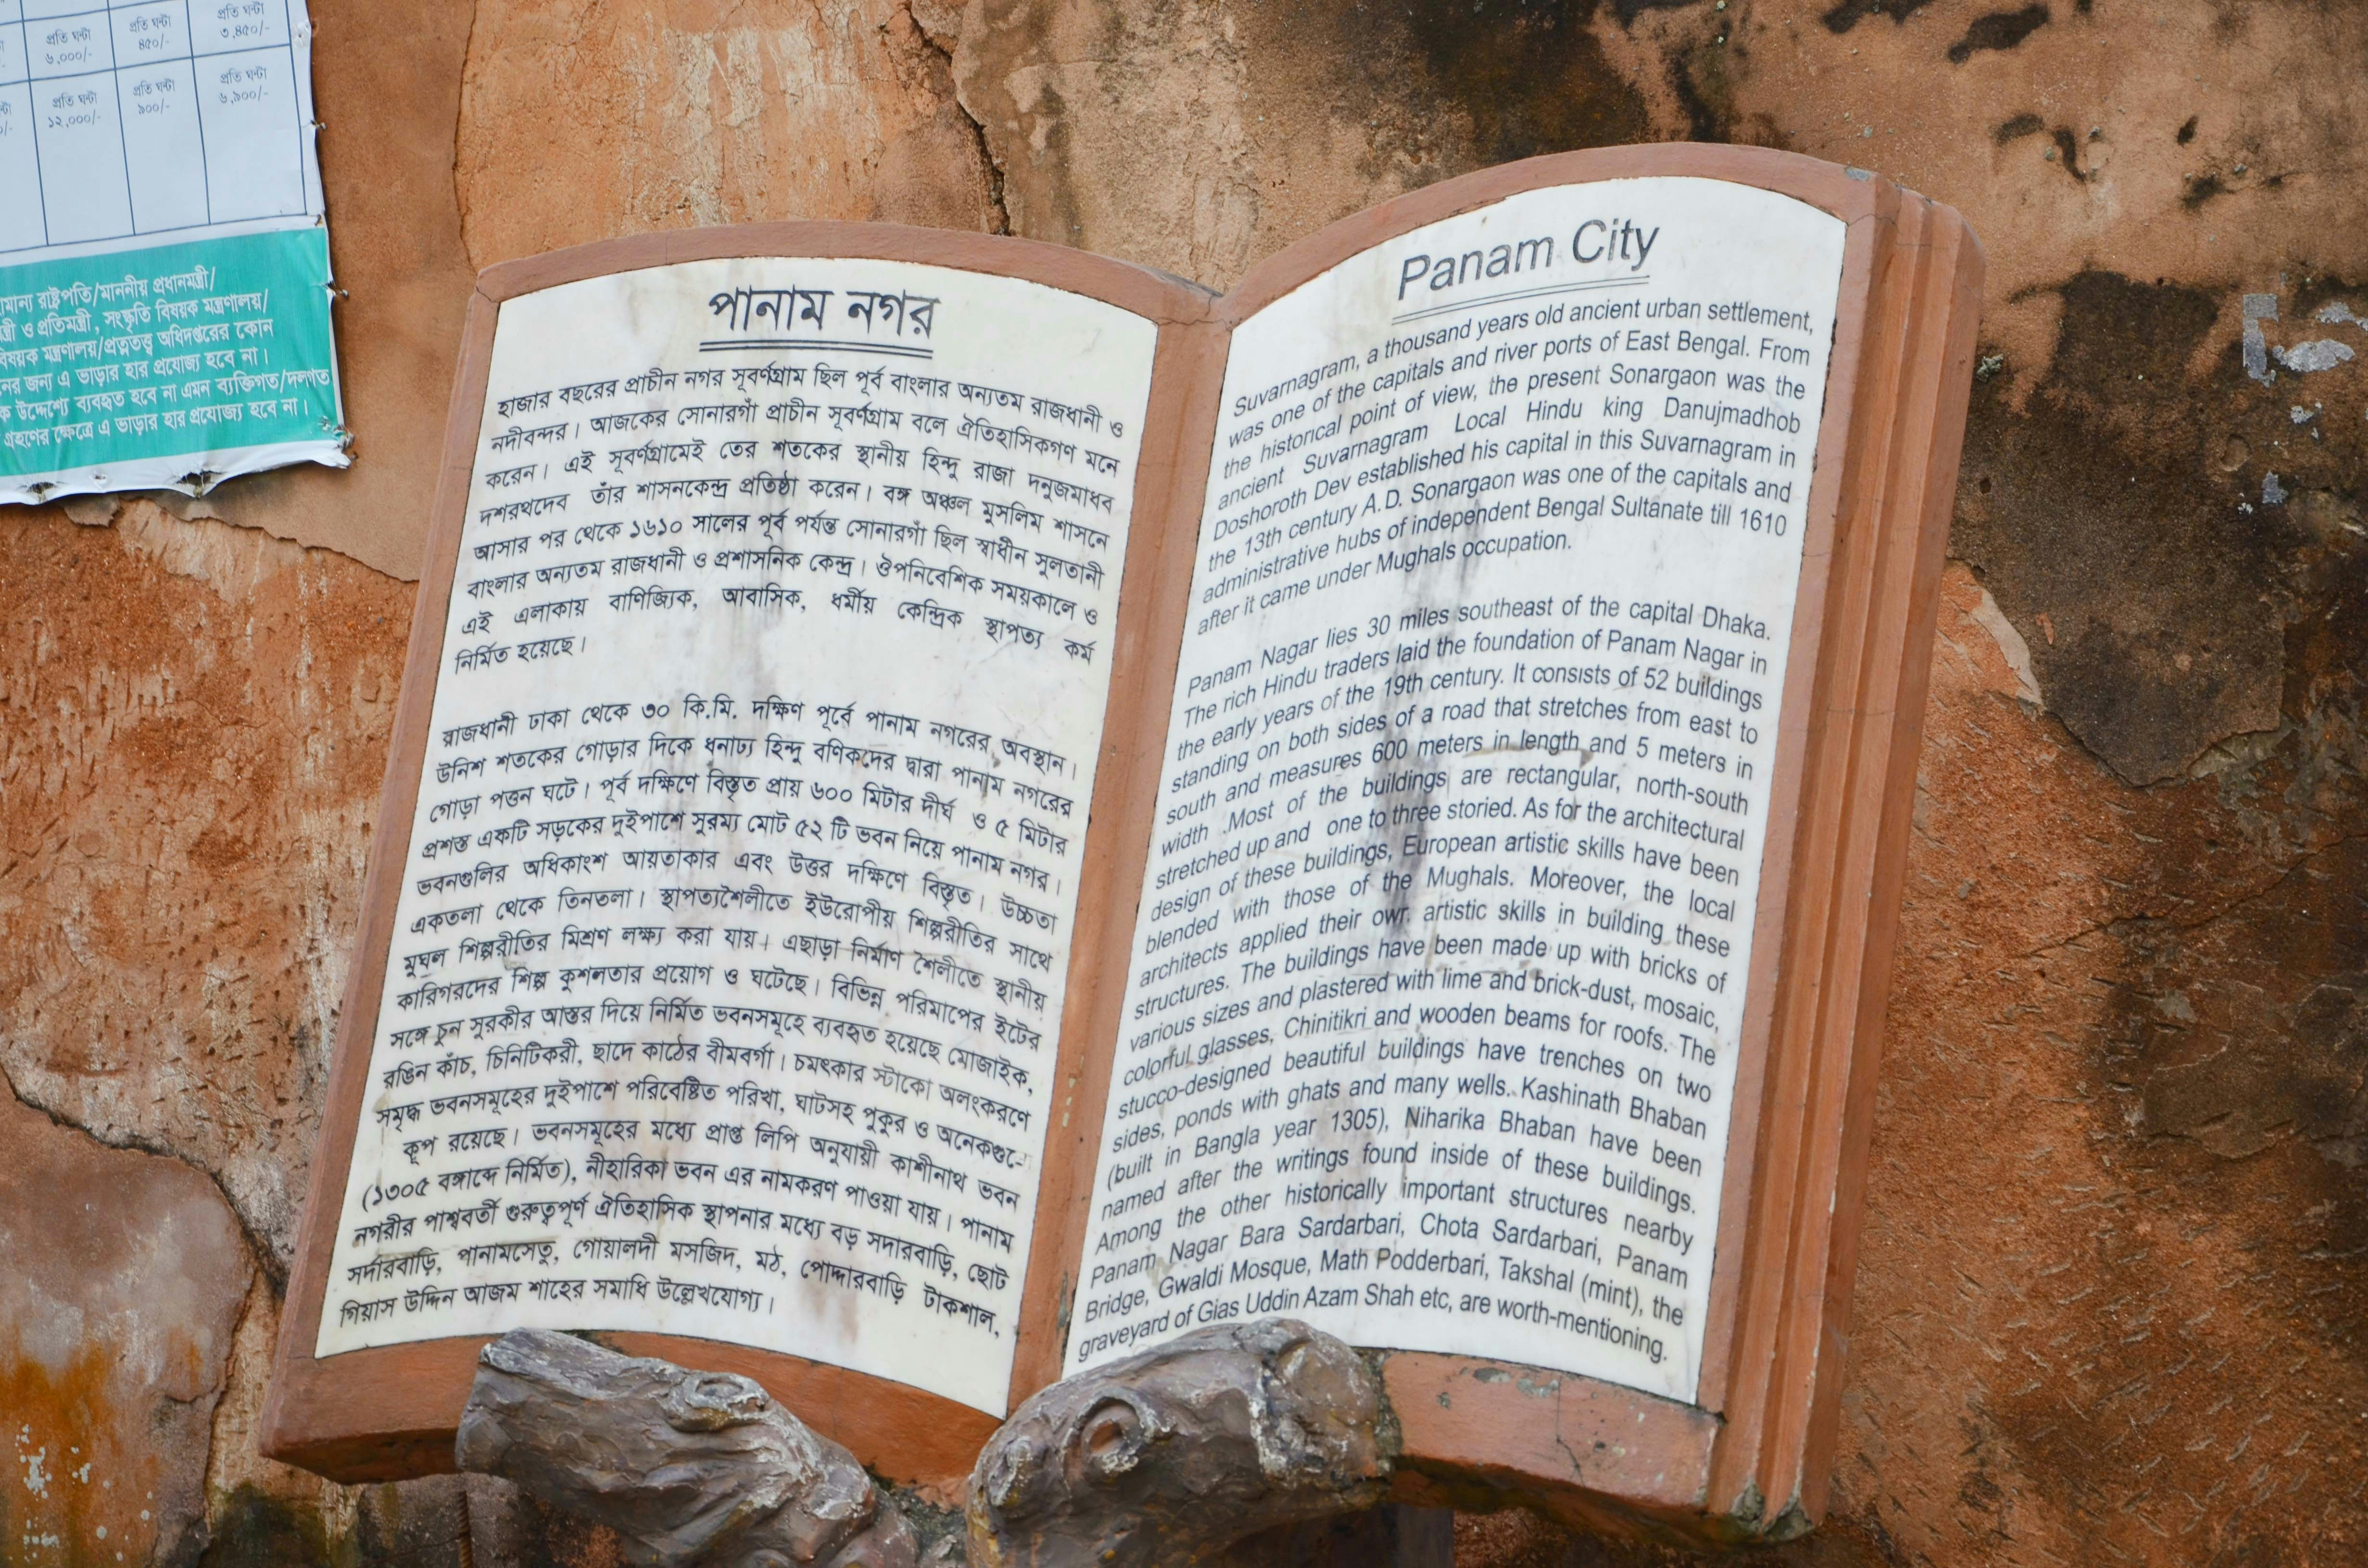 প্রতি ঘন্টা
৬,০০০/-
প্রতি ঘন্টা
৪৫০/-
প্রতি ঘন্টা
৩,৪৫০/-
প্রতি ঘন্টা
১২,০০০/-
প্রতি ঘন্টা
৯০০/-
প্রতি ঘন্টা
৬,৯০০/-
রাষ্ট্রপতি/মাননীয় প্রধানমন্ত্রী/
ও প্রতিমন্ত্রী, সংস্কৃতি বিষয়ক মন্ত্রণালয়/
বিষয়ক মন্ত্রণালয়/প্রত্নতত্ত্ব অধিদপ্তরের কোন
জন্য এ ভাড়ার হার প্রযোজ্য হবে না।
উদ্দেশ্যে ব্যবহৃত হবে না এমন ব্যক্তিগত/দলগত
গ্রহণের ক্ষেত্রে এ ভাড়ার হার প্রযোজ্য হবে না।
পানাম নগর
হাজার বছরের প্রাচীন নগর সূবর্ণগ্রাম ছিল পূর্ব বাংলার অন্যতম রাজধানী ও
নদীবন্দর। আজকের সোনারগাঁ প্রাচীন সূবর্ণগ্রাম বলে ঐতিহাসিকগণ মনে
করেন। এই সূবর্ণগ্রামেই তের শতকের স্থানীয় হিন্দু রাজা দনুজমাধব
দশরথদেব তাঁর শাসনকেন্দ্র প্রতিষ্ঠা করেন। বঙ্গ অঞ্চল মুসলিম শাসনে
আসার পর থেকে ১৬১০ সালের পূর্ব পর্যন্ত সোনারগাঁ ছিল স্বাধীন সুলতানী
বাংলার অন্যতম রাজধানী ও প্রশাসনিক কেন্দ্র। ঔপনিবেশিক সময়কালে ও
এই এলাকায় বাণিজ্যিক, আবাসিক, ধর্মীয় কেন্দ্রিক স্থাপত্য কর্ম
নির্মিত হয়েছে।
রাজধানী ঢাকা থেকে ৩০ কি.মি. দক্ষিণ পূর্বে পানাম নগরের অবস্থান।
উনিশ শতকের গোড়ার দিকে ধনাঢ্য হিন্দু বণিকদের দ্বারা পানাম নগরের
গোড়া পত্তন ঘটে। পূর্ব দক্ষিণে বিস্তৃত প্রায় ৬০০ মিটার দীর্ঘ ও ৫ মিটার
প্রশস্ত একটি সড়কের দুইপাশে সুরম্য মোট ৫২ টি ভবন নিয়ে পানাম নগর।
ভবনগুলির অধিকাংশ আয়তাকার এবং উত্তর দক্ষিণে বিস্তৃত। উচ্চতা
একতলা থেকে তিনতলা। স্থাপত্যশৈলীতে ইউরোপীয় শিল্পরীতির সাথে
মুঘল শিল্পরীতির মিশ্রণ লক্ষ্য করা যায়। এছাড়া নির্মাণ শৈলীতে স্থানীয়
কারিগরদের শিল্প কুশলতার প্রয়োগ ও ঘটেছে। বিভিন্ন পরিমাপের ইটের
সঙ্গে চুন সুরকীর আস্তর দিয়ে নির্মিত ভবনসমূহে ব্যবহৃত হয়েছে মোজাইক,
রঙিন কাঁচ, চিনিটিকরী, ছাদে কাঠের বীমবর্গা। চমৎকার স্টাকো অলংকরণে
সমৃদ্ধ ভবনসমূহের দুইপাশে পরিবেষ্টিত পরিখা, ঘাটসহ পুকুর ও
কূপ রয়েছে। ভবনসমূহের মধ্যে প্রাপ্ত লিপি অনুযায়ী কাশীনাথ ভবন
(১৩০৫ বঙ্গাব্দে নির্মিত), নীহারিকা ভবন এর নামকরণ পাওয়া যায়। পানাম
নগরীর পাশ্ববর্তী গুরুত্বপূর্ণ ঐতিহাসিক স্থাপনার মধ্যে বড় সদারবাড়ি, ছোট
সর্দারবাড়ি, পানামসেতু, গোয়ালদী মসজিদ, মঠ, পোদ্দারবাড়ি টাকশাল,
গিয়াস উদ্দিন আজম শাহের সমাধি উল্লেখযোগ্য।
Panam City
Suvarnagram, a thousand years old ancient urban settlement,
was one of the capitals and river ports of East Bengal. From
the historical point of view, the present Sonargaon was the
ancient Suvarnagram Local Hindu king Danujmadhob
Doshoroth Dev established his capital in this Suvarnagram in
the 13th century A.D. Sonargaon was one of the capitals and
administrative hubs of independent Bengal Sultanate till 1610
after it came under Mughals occupation.
Panam Nagar lies 30 miles southeast of the capital Dhaka.
The rich Hindu traders laid the foundation of Panam Nagar in
the early years of the 19th century. It consists of 52 buildings
standing on both sides of a road that stretches from east to
south and measures 600 meters in length and 5 meters in
width .Most of the buildings are rectangular, north-south
stretched up and one to three storied. As for the architectural
design of these buildings, European artistic skills have been
blended with those of the Mughals. Moreover, the local
architects applied their own artistic skills in building these
structures. The buildings have been made up with bricks of
various sizes and plastered with lime and brick-dust, mosaic,
colorful glasses, Chinitikri and wooden beams for roofs. The
stucco-designed beautiful buildings have trenches on two
sides, ponds with ghats and many wells. Kashinath Bhaban
(built in Bangla year 1305), Niharika Bhaban have been
named after the writings found inside of these buildings.
Among the other historically important structures nearby
Panam Nagar Bara Sardarbari, Chota Sardarbari, Panam
Bridge, Gwaldi Mosque, Math Podderbari, Takshal (mint), the
graveyard of Gias Uddin Azam Shah etc, are worth-mentioning.